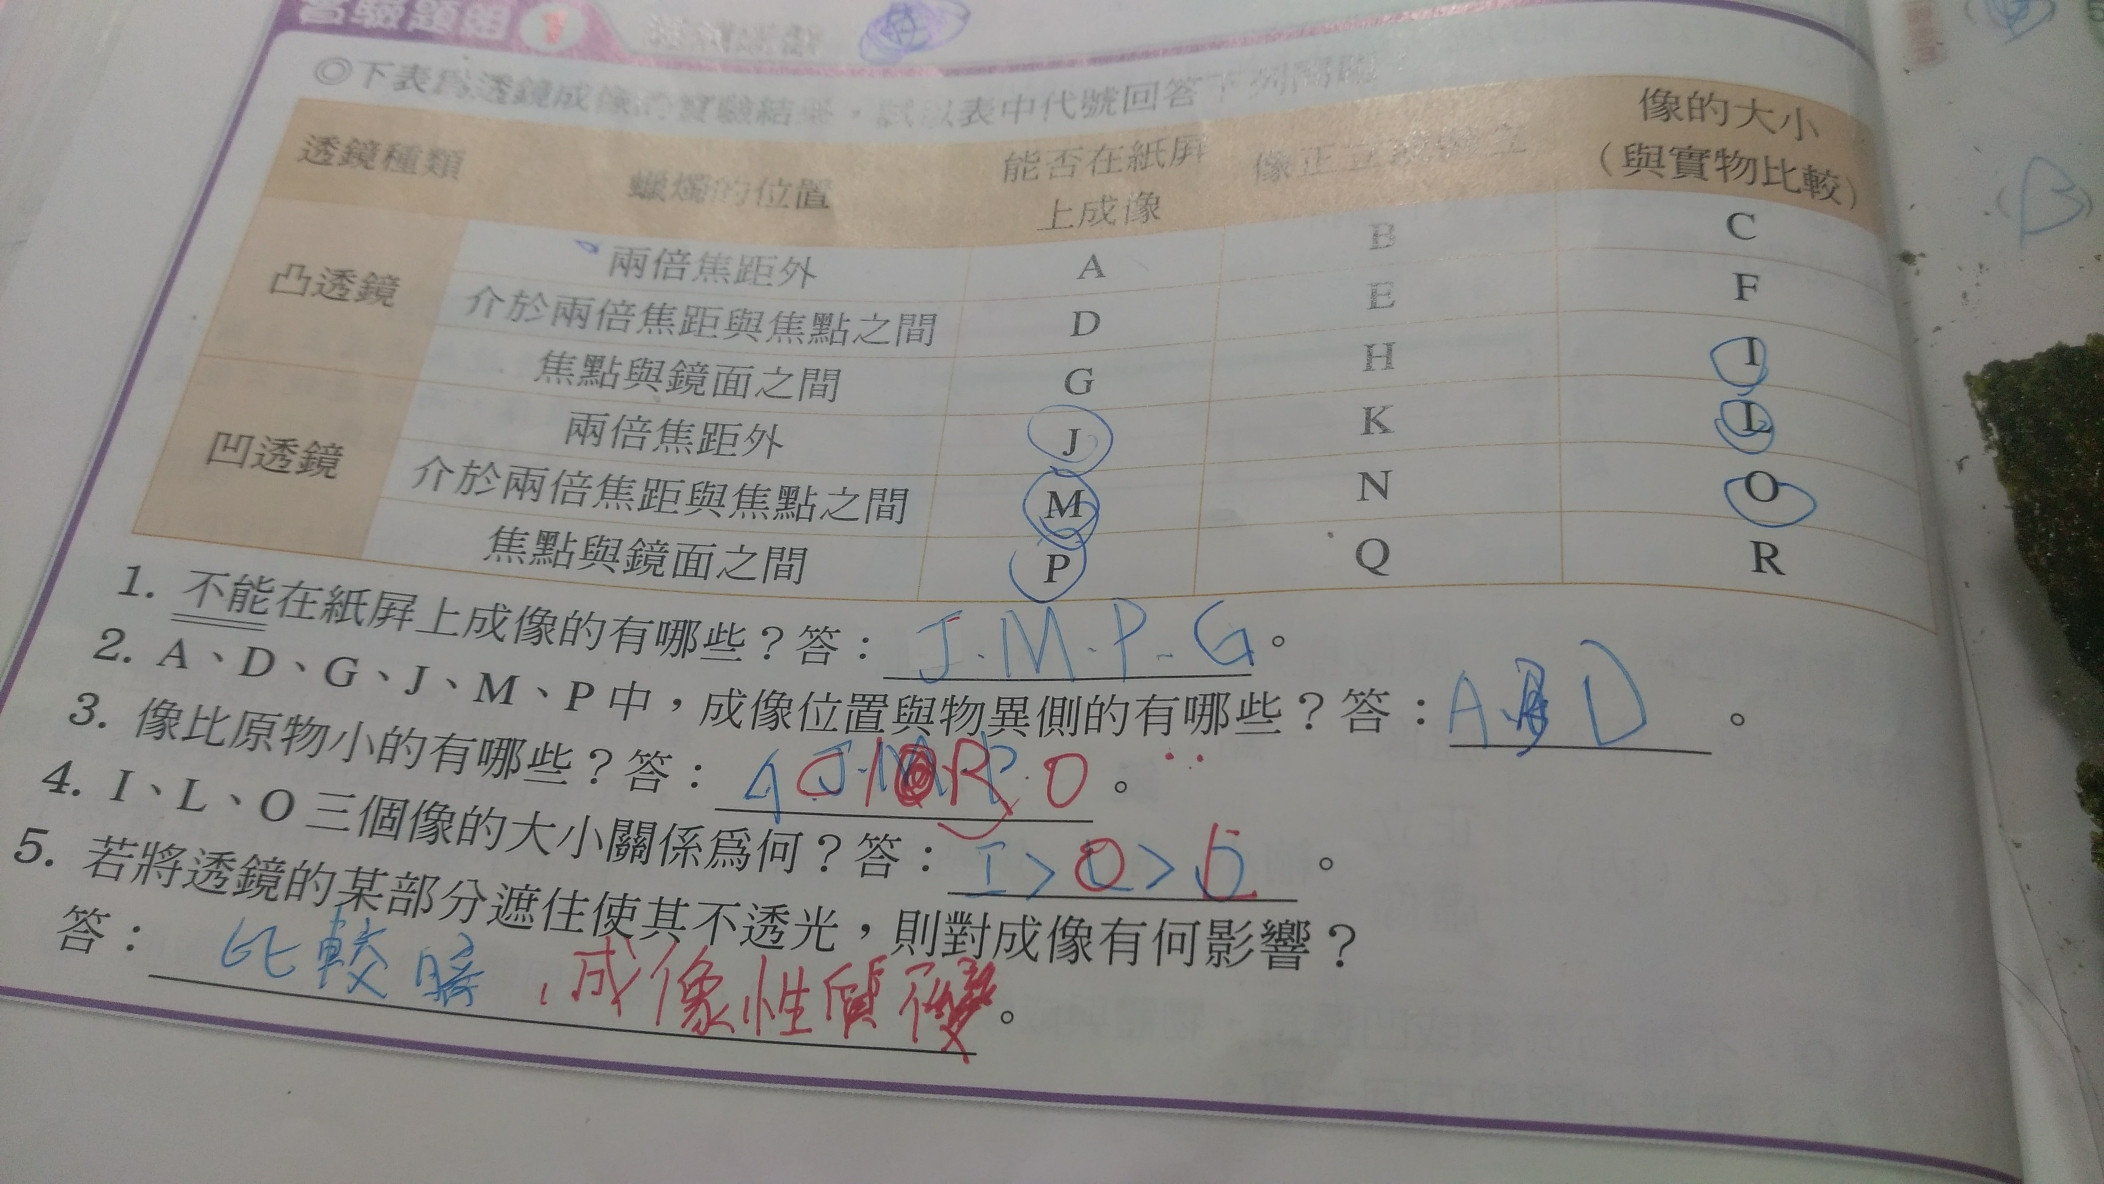 實驗題組 1
◎下表為透鏡成像的實驗結果，試以表中代號回答下列問題
透鏡種類 蠟燭的位置 能否在紙屏上成像 像正立或倒立 像的大小（與實物比較）
凸透鏡 兩倍焦距外 A B C
介於兩倍焦距與焦點之間 D E F
焦點與鏡面之間 G H I
凹透鏡 兩倍焦距外 J K L
介於兩倍焦距與焦點之間 M N O
焦點與鏡面之間 P Q R
1. 不能在紙屏上成像的有哪些？答：J.M.P-G。
2. A、D、G、J、M、P中，成像位置與物異側的有哪些？答：A D。
3. 像比原物小的有哪些？答：C R O。
4. I、L、O三個像的大小關係為何？答：I>O>L。
5. 若將透鏡的某部分遮住使其不透光，則對成像有何影響？
答：比較暗，成像性質不變。
(B)